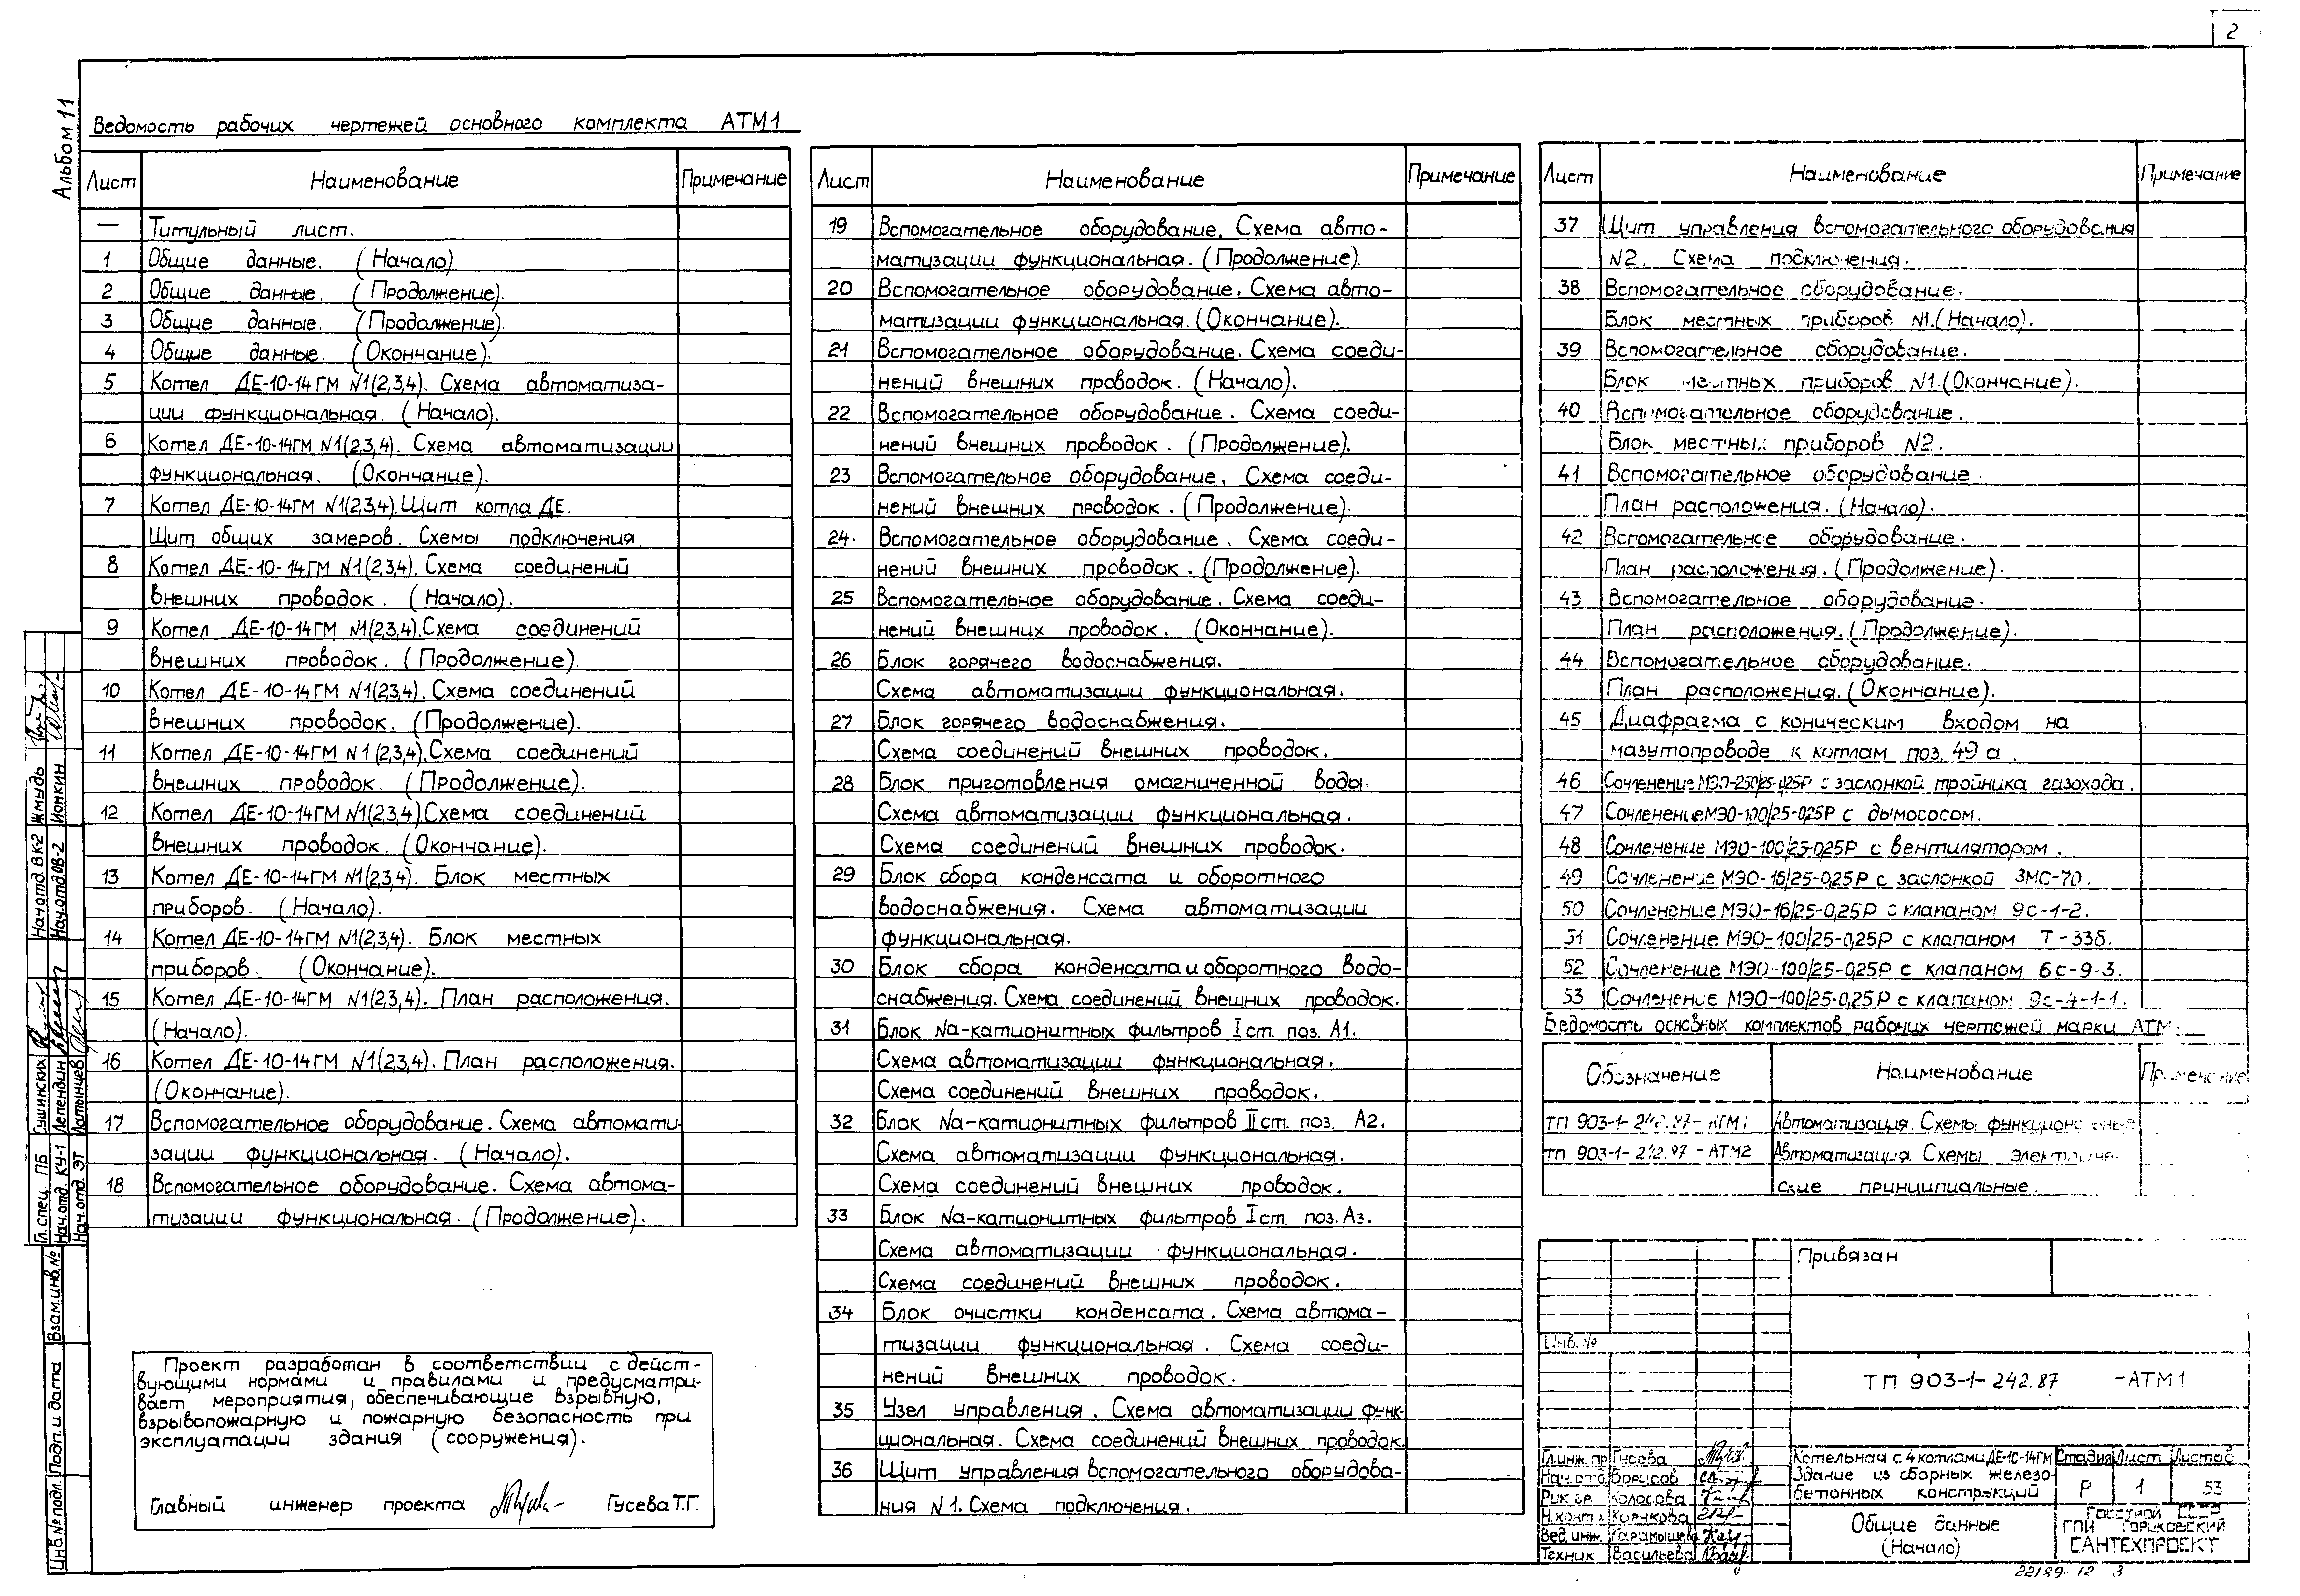 2
Альбом 11
Ведомость рабочих чертежей основного комплекта АТМ1
Лист Наименование Примечание
— Титульный лист.
1 Общие данные. (Начало)
2 Общие данные. (Продолжение).
3 Общие данные. (Продолжение).
4 Общие данные. (Окончание).
5 Котел ДЕ-10-14ГМ №1(2,3,4). Схема автоматиза-
ции функциональная. (Начало).
6 Котел ДЕ-10-14ГМ №1(2,3,4). Схема автоматизации
функциональная. (Окончание).
7 Котел ДЕ-10-14ГМ №1(2,3,4). Щит котла ДЕ.
Щит общих замеров. Схемы подключения
8 Котел ДЕ-10-14ГМ №1(2,3,4). Схема соединений
внешних проводок. (Начало).
9 Котел ДЕ-10-14ГМ №1(2,3,4). Схема соединений
внешних проводок. (Продолжение).
10 Котел ДЕ-10-14ГМ №1(2,3,4). Схема соединений
внешних проводок. (Продолжение).
11 Котел ДЕ-10-14ГМ №1(2,3,4). Схема соединений
внешних проводок. (Продолжение).
12 Котел ДЕ-10-14ГМ №1(2,3,4). Схема соединений
внешних проводок. (Окончание).
13 Котел ДЕ-10-14ГМ №1(2,3,4). Блок местных
приборов. (Начало).
14 Котел ДЕ-10-14ГМ №1(2,3,4). Блок местных
приборов. (Окончание).
15 Котел ДЕ-10-14ГМ №1(2,3,4). План расположения.
(Начало).
16 Котел ДЕ-10-14ГМ №1(2,3,4). План расположения.
(Окончание).
17 Вспомогательное оборудование. Схема автомати-
зации функциональная. (Начало).
18 Вспомогательное оборудование. Схема автома-
тизации функциональная. (Продолжение).
Проект разработан в соответствии с дейст-
вующими нормами и правилами и предусматри-
вает мероприятия, обеспечивающие взрывную,
взрывопожарную и пожарную безопасность при
эксплуатации здания (сооружения).
Главный инженер проекта Гусева Т.Г.
Лист Наименование Примечание
19 Вспомогательное оборудование. Схема авто-
матизации функциональная. (Продолжение).
20 Вспомогательное оборудование. Схема авто-
матизации функциональная. (Окончание).
21 Вспомогательное оборудование. Схема соеди-
нений внешних проводок. (Начало).
22 Вспомогательное оборудование. Схема соеди-
нений внешних проводок. (Продолжение).
23 Вспомогательное оборудование. Схема соеди-
нений внешних проводок. (Продолжение).
24. Вспомогательное оборудование. Схема соеди-
нений внешних проводок. (Продолжение).
25 Вспомогательное оборудование. Схема соеди-
нений внешних проводок. (Окончание).
26 Блок горячего водоснабжения.
Схема автоматизации функциональная.
27 Блок горячего водоснабжения.
Схема соединений внешних проводок.
28 Блок приготовления омагниченной воды.
Схема автоматизации функциональная.
Схема соединений внешних проводок.
29 Блок сбора конденсата и оборотного
водоснабжения. Схема автоматизации
функциональная.
30 Блок сбора конденсата и оборотного водо-
снабжения. Схема соединений внешних проводок.
31 Блок Na-катионитных фильтров I ст. поз. А1.
Схема автоматизации функциональная.
Схема соединений внешних проводок.
32 Блок Na-катионитных фильтров II ст. поз. А2.
Схема автоматизации функциональная.
Схема соединений внешних проводок.
33 Блок Na-катионитных фильтров I ст. поз. А3.
Схема автоматизации функциональная.
Схема соединений внешних проводок.
34 Блок очистки конденсата. Схема автома-
тизации функциональная. Схема соеди-
нений внешних проводок.
35 Узел управления. Схема автоматизации функ-
циональная. Схема соединений внешних проводок.
36 Щит управления вспомогательного оборудова-
ния №1. Схема подключения.
Лист Наименование Примечание
37 Щит управления вспомогательного оборудования
№2. Схема подключения.
38 Вспомогательное оборудование.
Блок местных приборов №1. (Начало).
39 Вспомогательное оборудование.
Блок местных приборов №1. (Окончание).
40 Вспомогательное оборудование.
Блок местных приборов №2.
41 Вспомогательное оборудование.
План расположения. (Начало).
42 Вспомогательное оборудование.
План расположения. (Продолжение).
43 Вспомогательное оборудование.
План расположения. (Продолжение).
44 Вспомогательное оборудование.
План расположения. (Окончание).
45 Диафрагма с коническим входом на
мазутопроводе к котлам поз. 49а.
46 Сочленение МЭО-250/25-0,25Р с заслонкой тройника газохода.
47 Сочленение МЭО-100/25-0,25Р с дымососом.
48 Сочленение МЭО-100/25-0,25Р с вентилятором.
49 Сочленение МЭО-16/25-0,25Р с заслонкой ЗМС-70.
50 Сочленение МЭО-16/25-0,25Р с клапаном 9с-1-2.
51 Сочленение МЭО-100/25-0,25Р с клапаном Т-33б.
52 Сочленение МЭО-100/25-0,25Р с клапаном 6с-9-3.
53 Сочленение МЭО-100/25-0,25Р с клапаном 9с-4-1-1.
Ведомость основных комплектов рабочих чертежей марки АТМ.
Обозначение Наименование Примечание
ТП 903-1-242.87-АТМ1 Автоматизация. Схемы функциональные
ТП 903-1-242.87-АТМ2 Автоматизация. Схемы электриче-
ские принципиальные.
Привязан
Инв.№
ТП 903-1-242.87 -АТМ1
Гл.инж.пр Гусева
Нач.отд. Борисов
Рук.гр. Колосова
Н.контр. Корчкова
Вед.инж. Карамышева
Техник Васильева
Котельная с 4 котлами ДЕ-10-14ГМ
Здание из сборных железо-
бетонных конструкций
Стадия Лист Листов
Р 1 53
Общие данные
(Начало)
Госстрой СССР
ГПИ Горьковский
САНТЕХПРОЕКТ
22189-12 3
Нач.отд. ВК-2 Жмудь
Нач.отд.ОВ-2 Ионкин
Гл.спец. ПБ Сушинских
Нач.отд. КУ-1 Лепендин
Нач.отд. ЭТ Латынцев
Взам.инв.№
Подп. и дата
Инв.№ подл.